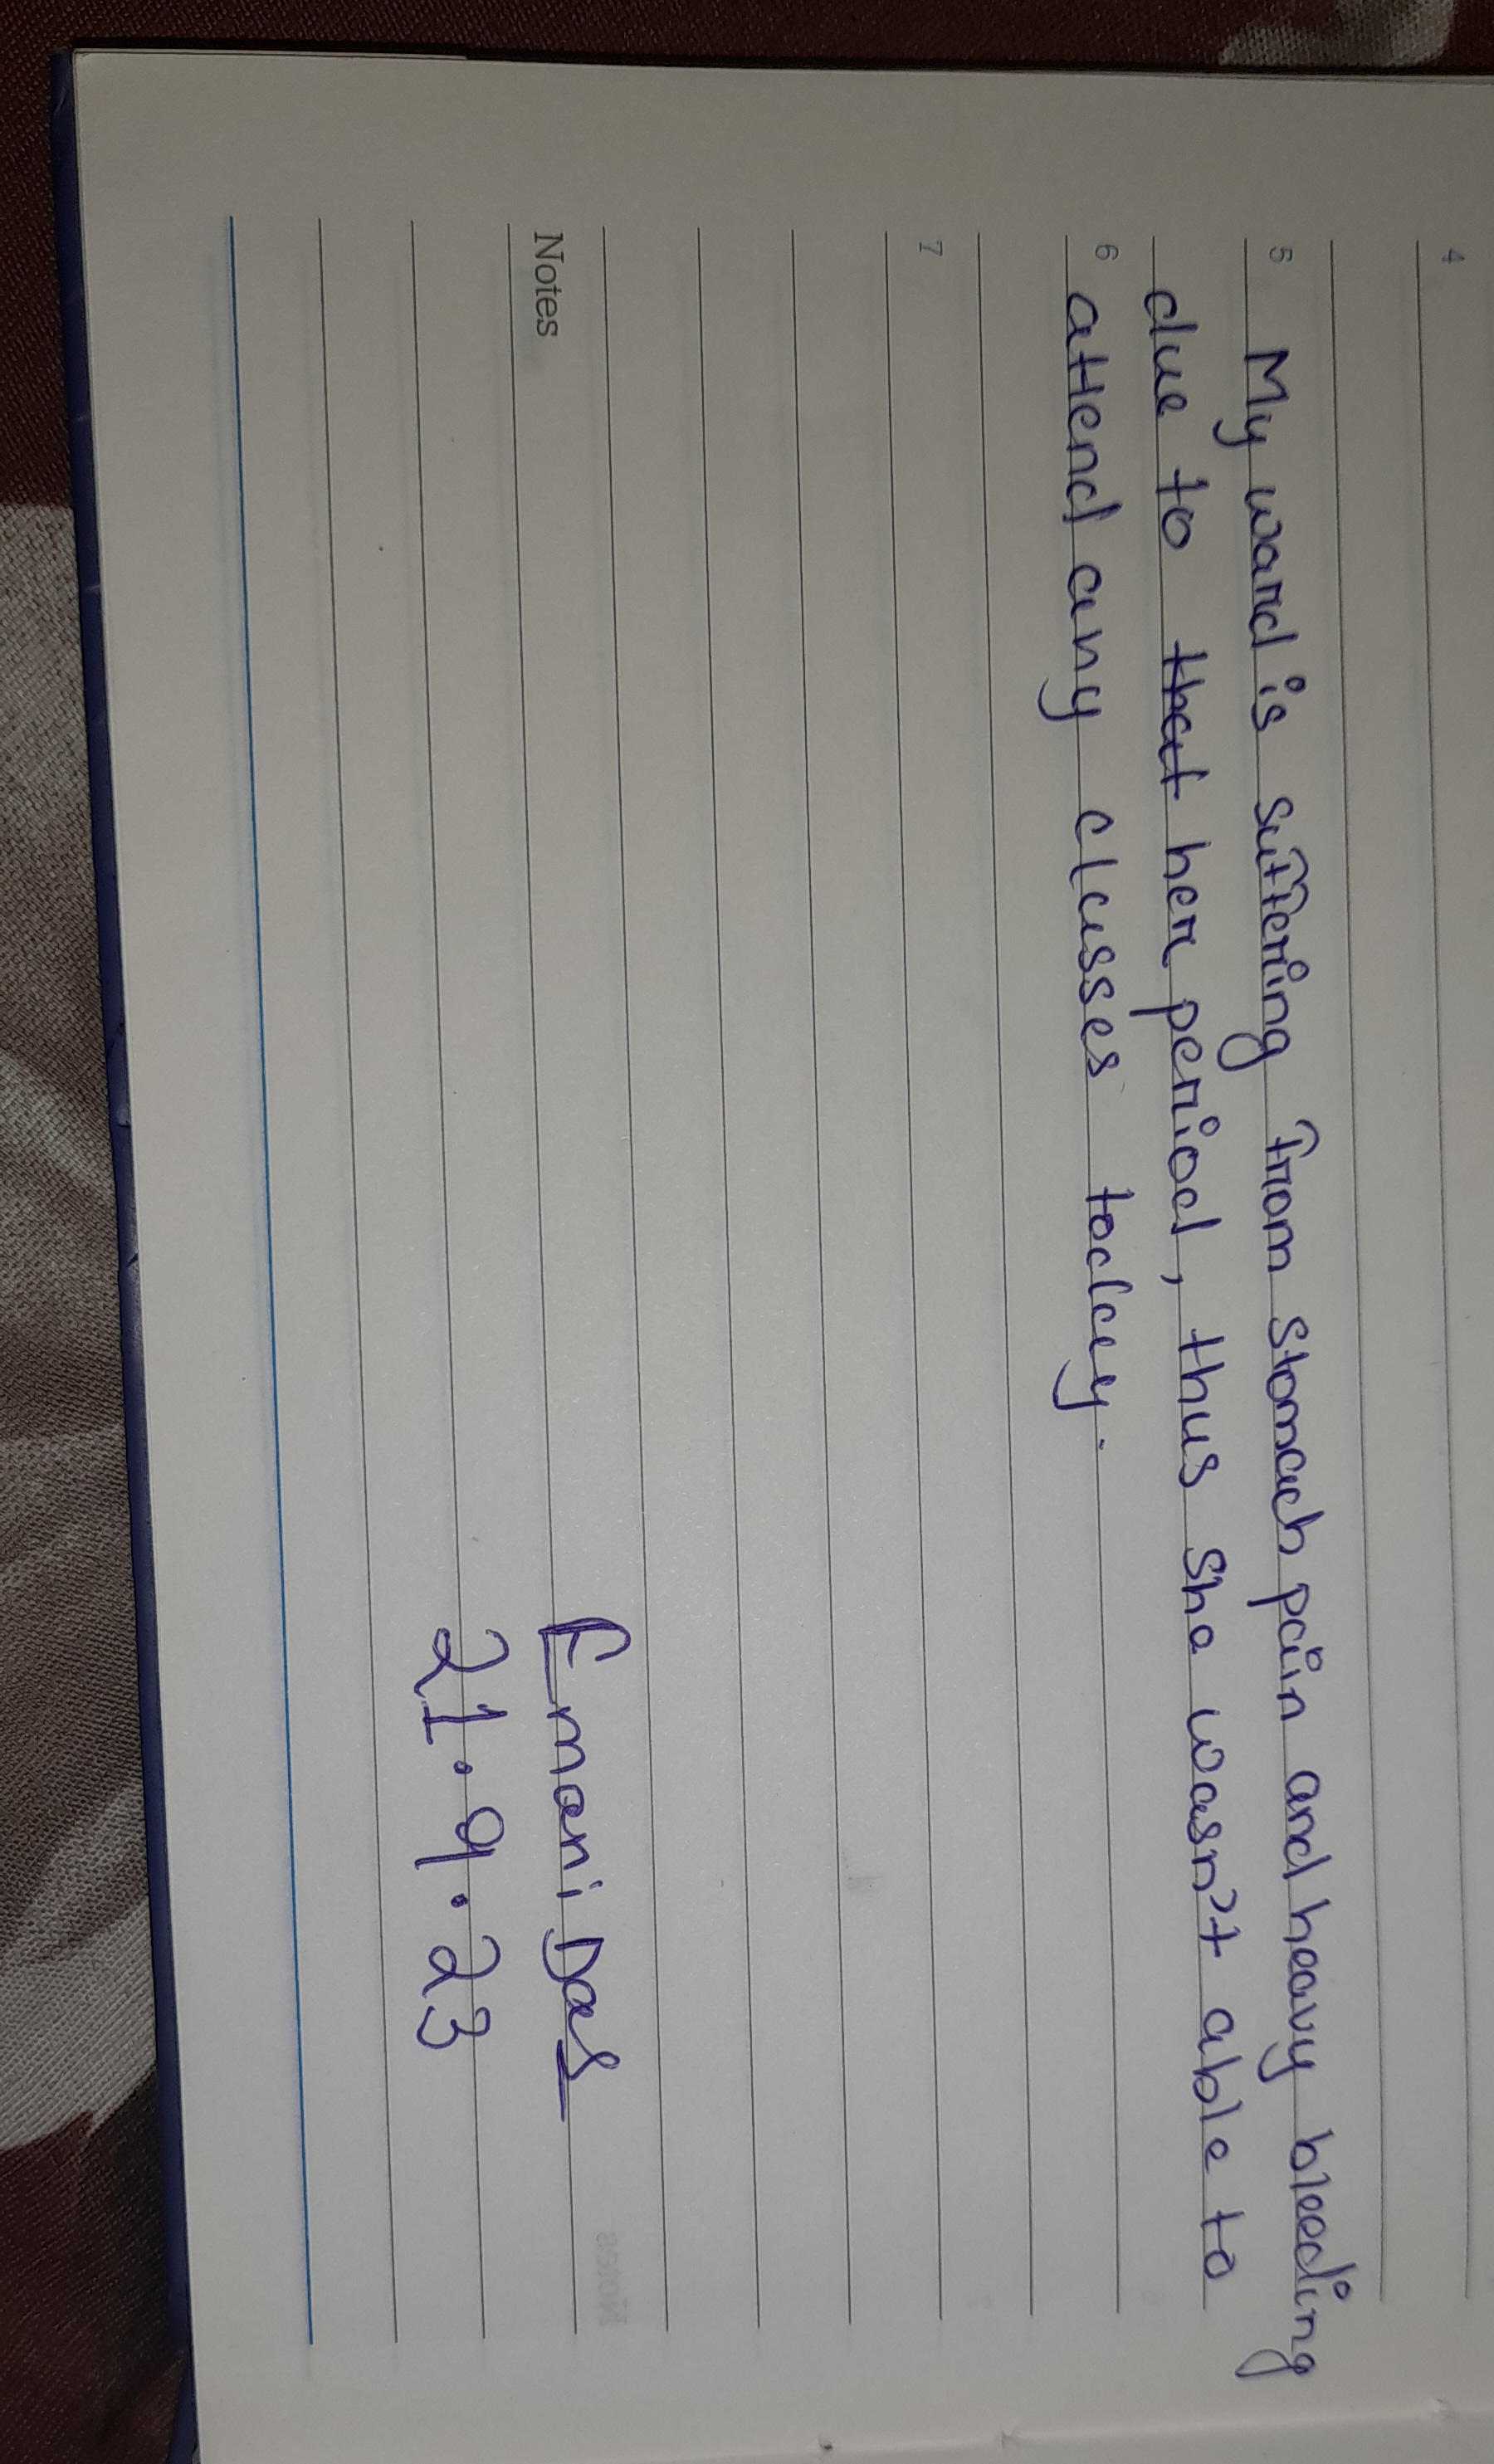 4
5 My ward is suffering from stomach pain and heavy bleeding
due to that her period, thus she wasn't able to
6 attend any classes today.
7
Notes Emoni Das
21.9.23